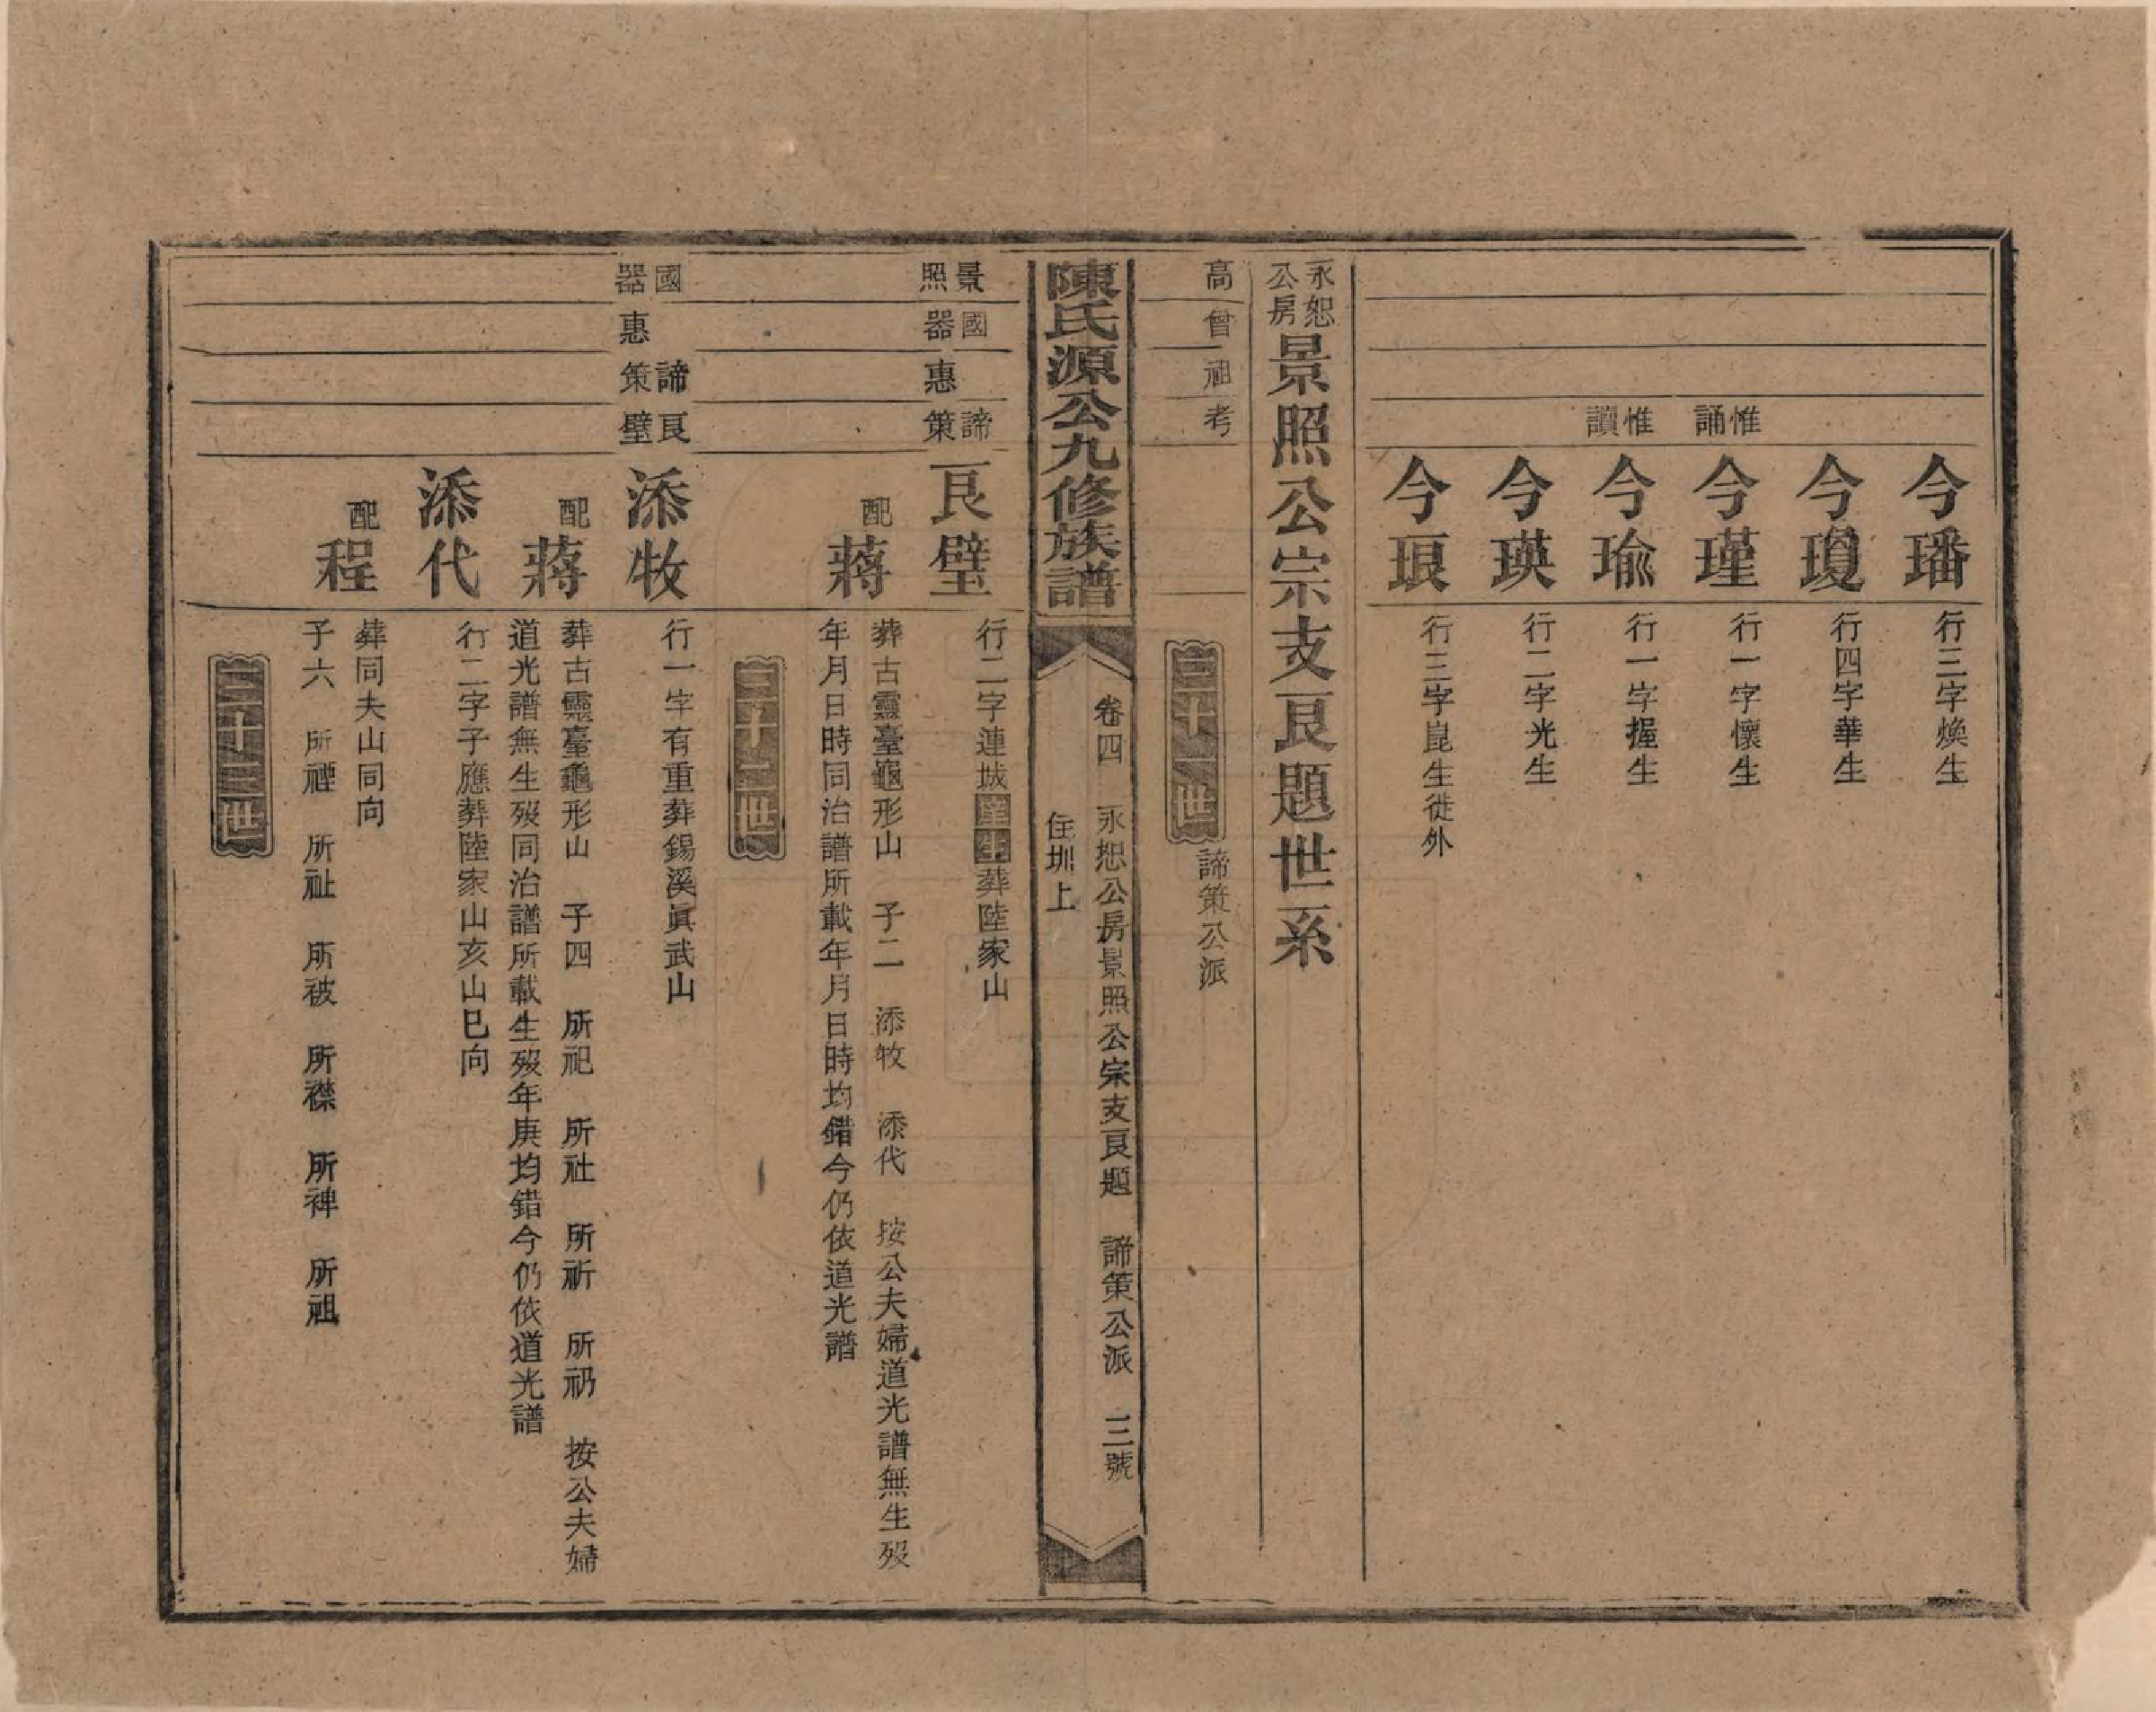 今璠
行三字煥生
今瓊
行四字華生
惟誦
今瑾
行一字懷生
惟讀
今瑜
行一字握生
今瑛
行二字光生
今琅
行三字崑生徙外
永恕公房
景照公宗支艮題世系
高
曾
祖
考
三十一世
諦策公派
陳氏源公九修族譜
卷四 永恕公房景照公宗支艮題 諦策公派 三號
住圳上
景照
國器
惠
諦策
艮璧
行二字連城葬陸家山
配蔣
葬古靈臺龜形山 子二 添牧 添代 按公夫婦道光譜無生歿
年月日時同治譜所載年月日時均錯今仍依道光譜
三十二世
國器
惠
諦策
艮璧
添牧
行一字有重葬錫溪眞武山
配蔣
葬古靈臺龜形山 子四 所祀 所社 所祈 所礽 按公夫婦
道光譜無生歿同治譜所載生歿年庚均錯今仍依道光譜
添代
行二字子應葬陸家山亥山巳向
配程
葬同夫山同向
子六 所禋 所祉 所被 所襟 所禆 所祖
三十三世